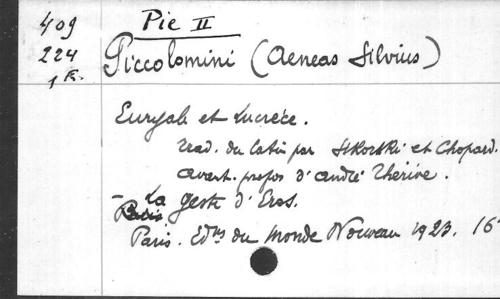 409
224
Pie II
Piccolomini (Aeneas Silvius)
Euryale et Lucrèce.
trad. du latin par Sikorski et Chopard.
avant-propos d'André Thérive.
- La geste d'Eros.
Paris. Ed^ns du Monde Nouveau 1923. 16°